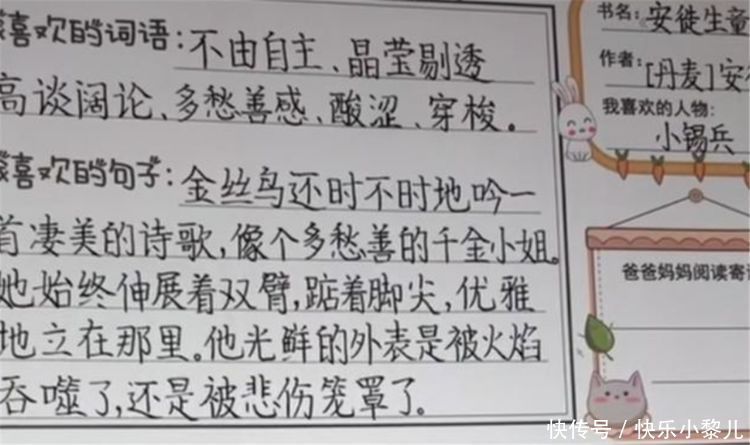 喜欢的词语:不由自主、晶莹剔透
高谈阔论、多愁善感、酸涩、穿梭。
喜欢的句子:金丝鸟还时不时地吟一
首凄美的诗歌,像个多愁善的千金小姐。
她始终伸展着双臂,踮着脚尖,优雅
地立在那里。他光鲜的外表是被火焰
吞噬了,还是被悲伤笼罩了。
书名:安徒生童
作者:[丹麦]安
我喜欢的人物:
小锡兵
爸爸妈妈阅读寄
快传号/快乐小黎儿